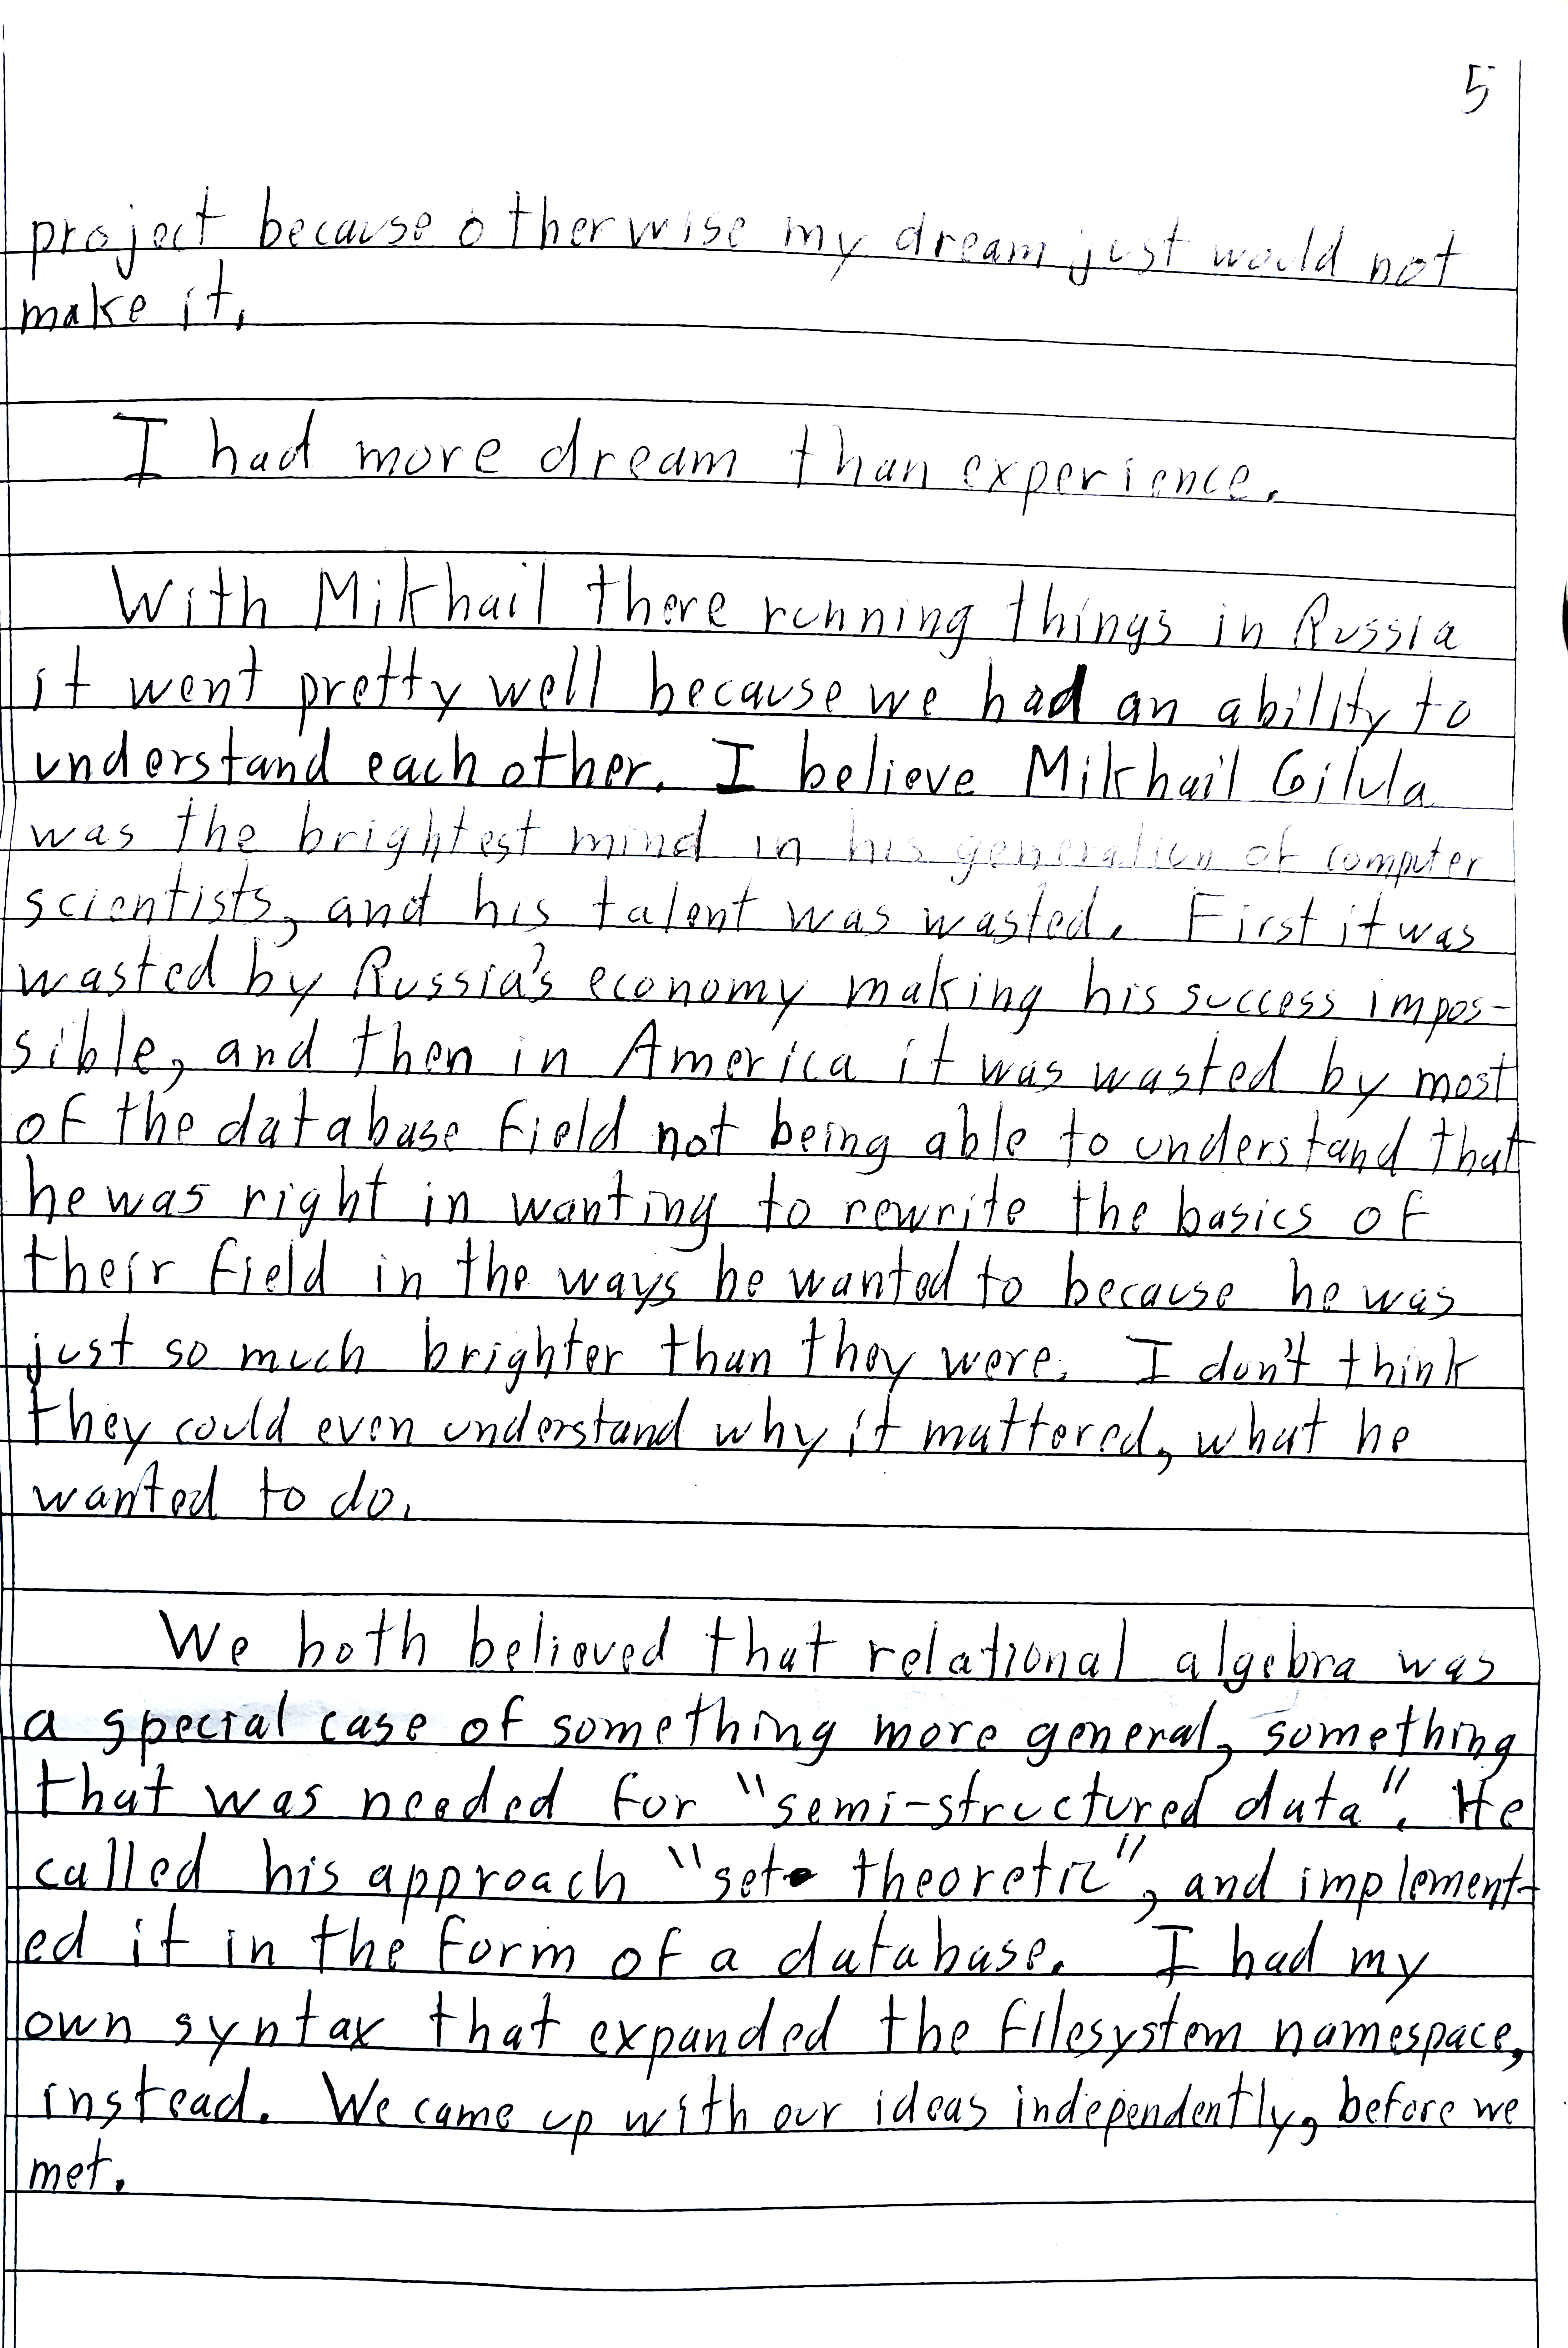 5
project because otherwise my dream just would not
make it.
I had more dream than experience.
With Mikhail there running things in Russia
it went pretty well because we had an ability to
understand each other. I believe Mikhail Gilula
was the brightest mind in his generation of computer
scientists, and his talent was wasted. First it was
wasted by Russia's economy making his success impos-
sible, and then in America it was wasted by most
of the database field not being able to understand that
he was right in wanting to rewrite the basics of
their field in the ways he wanted to because he was
just so much brighter than they were. I don't think
they could even understand why it mattered, what he
wanted to do.
We both believed that relational algebra was
a special case of something more general, something
that was needed for "semi-structured data". He
called his approach "set theoretic", and implement-
ed it in the form of a database. I had my
own syntax that expanded the filesystem namespace,
instead. We came up with our ideas independently, before we
met.